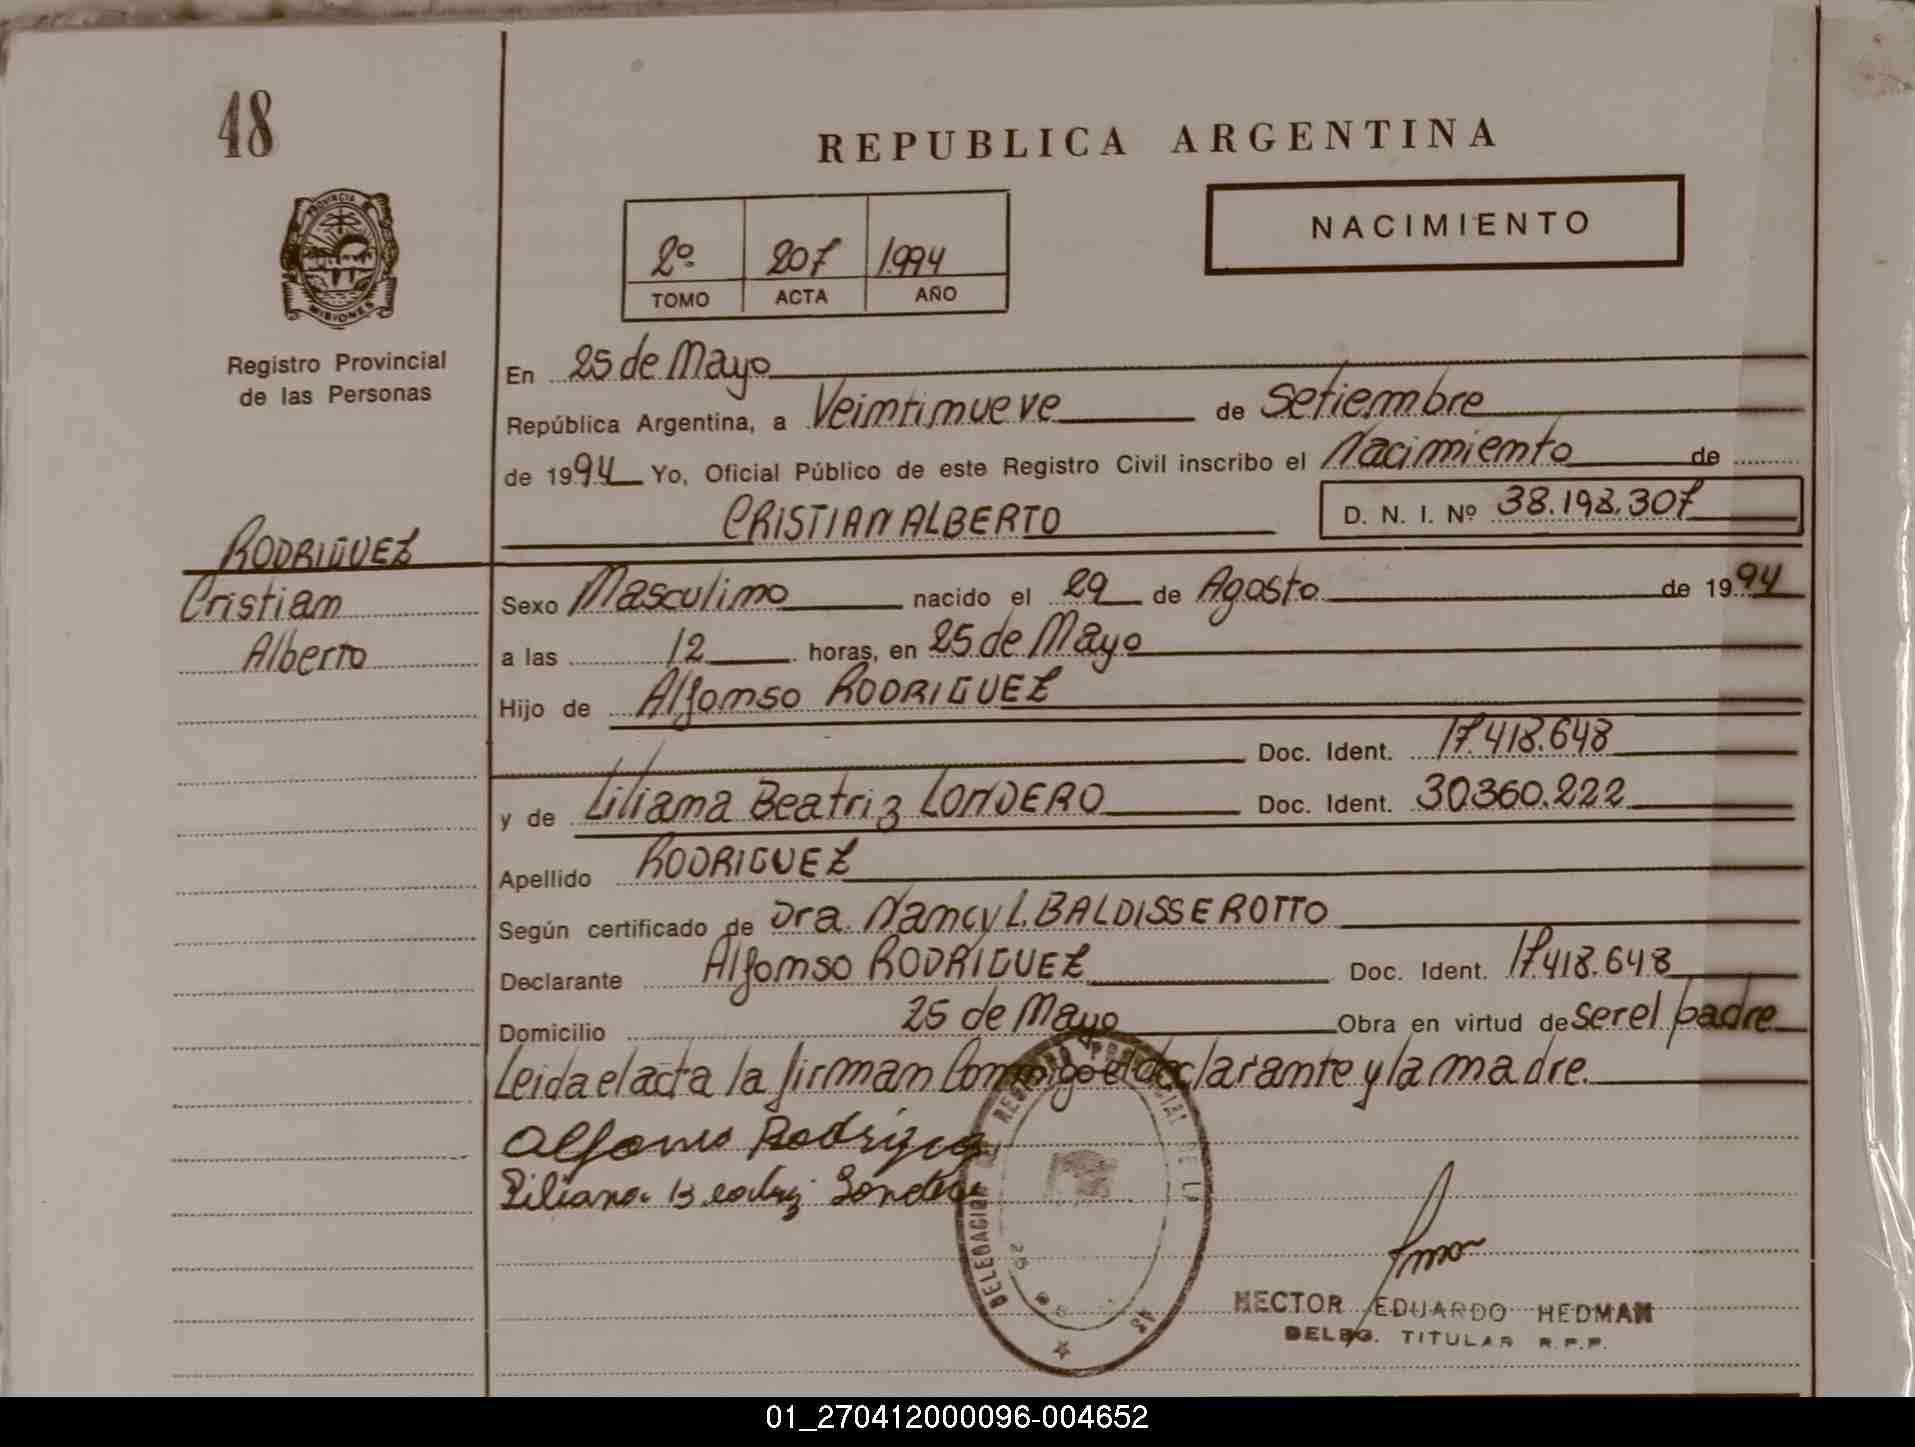 48
REPUBLICA ARGENTINA
PROVINCIA DE
MISIONES
Registro Provincial
de las Personas
2º 207 1.994
TOMO ACTA AÑO
NACIMIENTO
En 25 de Mayo
República Argentina, a Veintinueve de Setiembre
de 1994 Yo, Oficial Público de este Registro Civil inscribo el Nacimiento de
CRISTIAN ALBERTO D. N. I. Nº 38.198.307
RODRIGUEZ
Cristian
Alberto
Sexo Masculino nacido el 29 de Agosto de 1994
a las 12 horas, en 25 de Mayo
Hijo de Alfonso RODRIGUEZ
Doc. Ident. 17.418.648
y de Liliana Beatriz LONDERO Doc. Ident. 30.360.222
Apellido RODRIGUEZ
Según certificado de Dra. Nancy L. BALDISSEROTTO
Declarante Alfonso RODRIGUEZ Doc. Ident. 17.418.648
Domicilio 25 de Mayo Obra en virtud de ser el padre
Leida el acta la firman Conmigo el declarante y la madre.
Alfonso Rodriguez
Liliana Beatriz Londero
DELEGACION REGISTRO PROVINCIAL DE L
HECTOR EDUARDO HEDMAN
DELEG. TITULAR R.P.P.
01_270412000096-004652